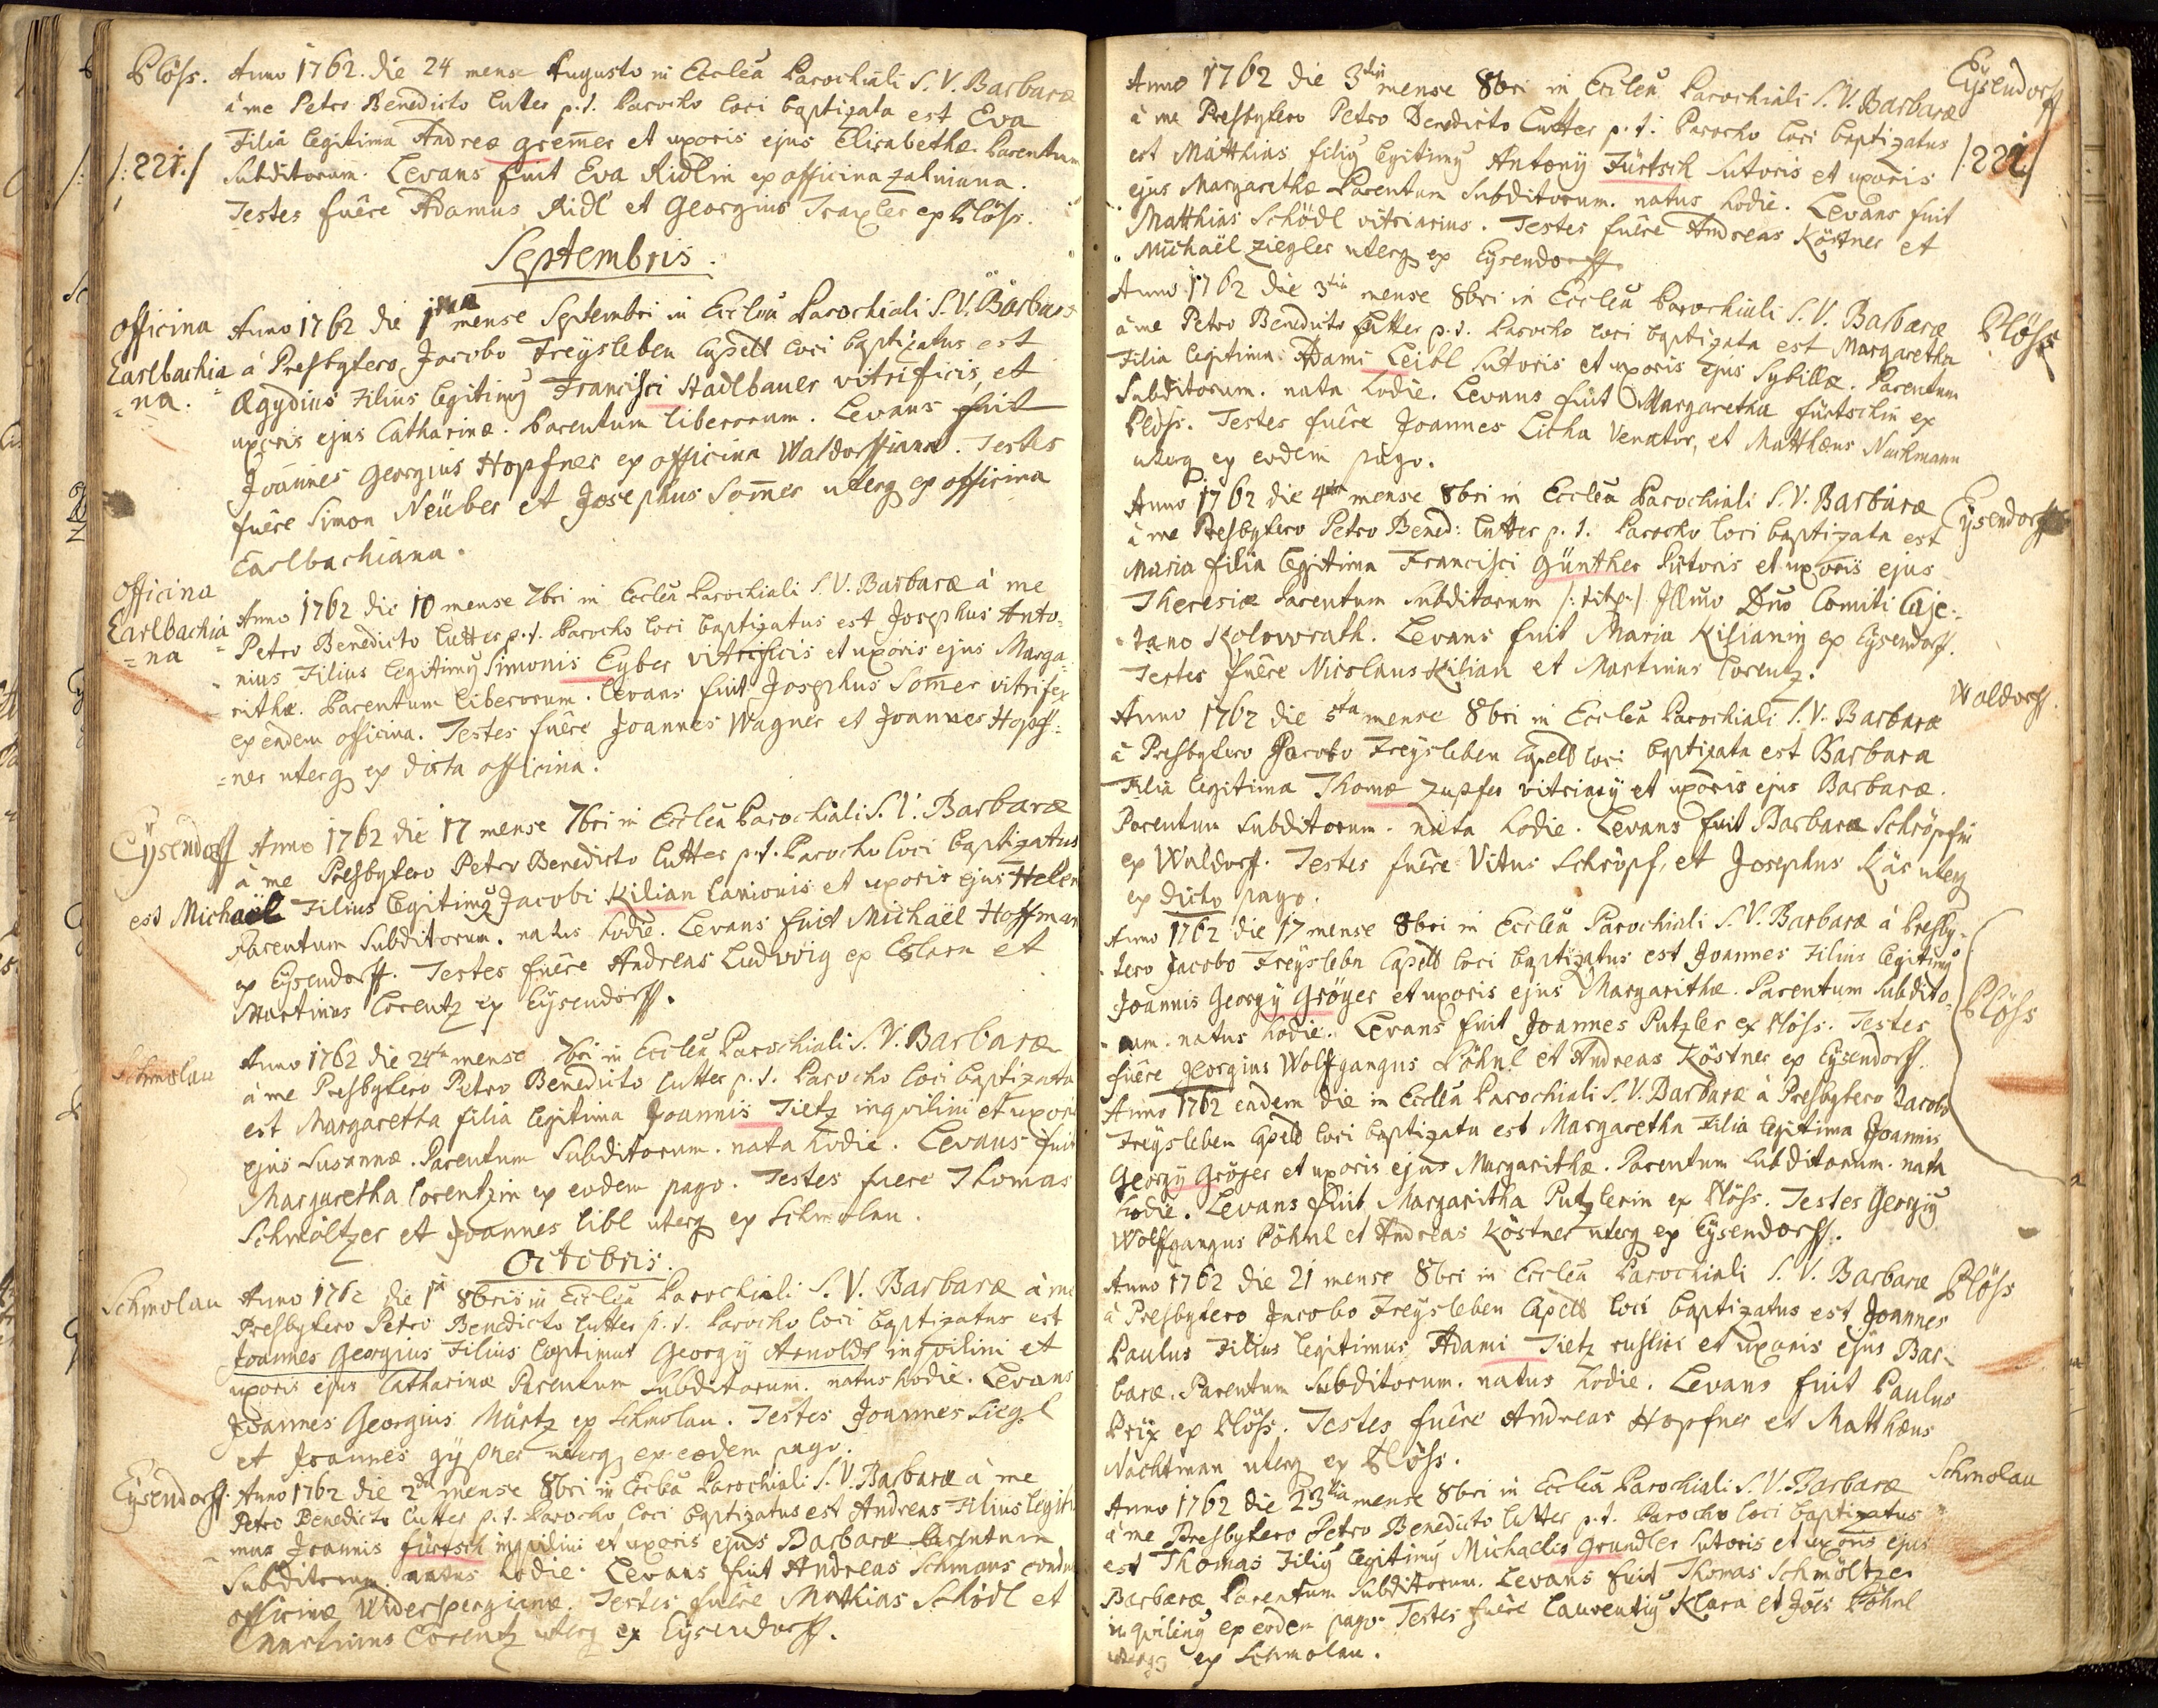 Plöss. Anno 1762. die 24 mense Augusto in Ecclea Parochiali S. V. Barbaræ
à me Petro Benedicto Lutter p. t. Parocho loci baptizata est Eva
Filia legitima Andreæ Grem̄er et uxoris ejus Elisabethæ. Parentum
/:221:/ Subditorum. Levans fuit Eva Ridlin ex officina zahniana.
Testes fuêre Adamus Ridl et Georgius Traxler ex Plöss.
Septembris.
officina Anno 1762 die 1ma mense Septembri in Ecclea Parochiali S. V. Barbaræ
Earlbachia à Presbytero Jacobo Freysleben Capell loci baptizatus est
=na. Ægydius Filius legitimus Francisci Hadlbauer vitrificis, et
uxoris ejus Catharinæ. Parentum liberorum. Levans fuit
Joannes Georgius Hopfner ex officina Waldorffiana. Testes
fuêre Simon Neüber et Josephus Som̄er uterq ex officina
Earlbachiana.
officina
Earlbachia Anno 1762 die 10 mense 7bri in Ecclea Parochiali S. V. Barbaræ à me
=na Petro Benedicto Lutter p. t. Parocho loci baptizatus est Josephus Anto=
nius Filius legitimus Simonis Eyber vitrificis et uxoris ejus Marga=
rithæ. Parentum liberorum. Levans fuit Josephus Som̄er vitrifex
ex eadem officina. Testes fuêre Joannes Wagner et Joannes Hopf=
=ner uterq ex dicta officina.
Eÿsendorff Anno 1762 die 17 mense 7bri in Ecclea Parochiali S. V. Barbaræ
à me Presbytero Petro Benedicto Lutter p. t. Parocho loci baptizatus
est Michaël Filius legitimus Jacobi Kilian lanionis et uxoris ejus Helen
Parentum Subditorum. natus hodie. Levans fuit Michaël Hoffman
ex Eÿsendorff. Testes fuêre Andreas Ludwig ex Eslarn et
Martinus Lorentz ex Eÿsendorff.
Schmolau Anno 1762 die 24ta mense 7bri in Ecclea Parochiali S. V. Barbaræ
à me Presbytero Petro Benedicto Lutter p. t. Parocho loci baptizata
est Margaretha filia legitima Joannis Tietz inqvilini et uxoris
ejus Susannæ. Parentum Subditorum. nata hodie. Levans fuit
Margaretha Lorentzin ex eodem pago. Testes fuere Thomas
Schmöltzer et Joannes Libl uterq ex Schmolau.
Octobris.
Schmolau Anno 1762 die 1ma 8bris in Ecclea Parochiali S. V. Barbaræ à me
Presbytero Petro Benedicto Lutter p. t. Parocho loci baptizatus est
Joannes Georgius Filius legitimus Georgÿ Arnoldt inqvilini et
uxoris ejus Catharinæ Parentum Subditorum. natus hodie. Levans
Joannes Georgius Märtz ex Schmolau. Testes Joannes Siegl
et Joannes uterq ex eodem pago.
Eÿsendorff. Anno 1762 die 2da mense 8bri in Ecclea Parochiali S. V. Barbaræ à me
Petro Benedicto Lutter p. t. Parocho loci baptizatus est Andreas Filius legiti
mus Joannis Fürtsch inqvilini et uxoris ejus Barbaræ Parentum
Subditorum. natus hodie. Levans fuit Andreas Schmaus
officinæ Widerspergianæ. Testes fuêre Mathias Schödl et
Martinus Lorentz uterq ex Eÿsendorff.
Anno 1762 die 3tia mense 8bri in Ecclea Parochiali S. V. Barbaræ Eÿsendorff
à me Presbytero Petro Benedicto Lutter p. t. Parocho loci baptizatus
est Matthias filius legitimus Antonÿ Fürtsch Sutoris et uxoris /:222:/
ejus Margarethæ Parentum Subditorum. natus hodie. Levans fuit
Matthias Schödl vitriarius. Testes fuêre Andreas Köstner et
Michaël Ziegler uterq ex Eÿsendorff.
Anno 1762 die 3tia mense 8bri in Ecclea Parochiali S. V. Barbaræ Plöss
à me Petro Benedicto Lutter p. t. Parocho loci baptizata est Margaretha
Filia legitima Adami Leibl Sutoris et uxoris ejus Sybillæ. Parentum
Subditorum. nata hodie. Levans fuit Margaretha fürtschin ex
Plöss. Testes fuêre Joannes Licha Venator, et Matthæus Nachmann
uterq ex eodem pago.
Anno 1762 die 4ta mense 8bri in Ecclea Parochiali S. V. Barbaræ Eÿsendorff
à me Presbytero Petro Bened: Lutter p. t. Parocho loci baptizata est
Maria filia legitima Francisci Günther Pistoris et uxoris ejus
Theresiæ Parentum Subditorum /: titp:/ Illmo Dno Comiti Caje=
tano Kolowrath. Levans fuit Maria Kilianin ex Eÿsendorff.
Testes fuêre Nicolaus Kilian et Martinus Lorentz.
Anno 1762 die 5ta mense 8bri in Ecclea Parochiali S. V. Barbaræ Waldorff.
à Presbytero Jacobo Freysleben Capell loci baptizata est Barbara
Filia legitima Thomæ Zupfer vitriarÿ et uxoris ejus Barbaræ.
Parentum Subditorum. nata hodie. Levans fuit Barbara Schröpfin
ex Waldorff. Testes fuêre Vitus Schröpf, et Josephus Kär uterq
ex dicto pago.
Anno 1762 die 17 mense 8bri in Ecclea Parochiali S. V. Barbaræ à Presby=
tero Jacobo Freyslebn Capell loci baptizatus est Joannes Filius legitimus
Joannis Georgÿ Gröger et uxoris ejus Margarithæ. Parentum Subdito= Plöss
rum. natus hodie. Levans fuit Joannes Putzler ex Plöss. Testes
fuêre Georgius Wolffgangus Pöhnl et Andreas Köstner ex Eÿsendorff.
Anno 1762 eadem die in Ecclea Parochiali S. V. Barbaræ à Presbytero Jacobo
Freysleben Capell loci baptizata est Margaretha Filia legitima Joannis
Georgÿ Gröger et uxoris ejus Margarithæ. Parentum Subditorum. nata
hodie. Levans fuit Margaritha Putzlerin ex Plöss. Testes Georgius
Wolffgangus Pöhnl et Andreas Köstner uterq ex Eÿsendorff.
Anno 1762 die 21 mense 8bri in Ecclea Parochiali S. V. Barbaræ Plöss
à Presbytero Jacobo Freysleben Capell loci baptizatus est Joannes
Paulus Filius legitimus Adami Tietz rustici et uxoris ejus Bar=
baræ. Parentum Subditorum. natus hodie. Levans fuit Paulus
Prix ex Plöss. Testes fuêre Andreas Hopfner et Matthæus
Nachtman uterq ex Plöss.
Anno 1762 die 23tia mense 8bri in Ecclea Parochiali S. V. Barbaræ Schmolau
à me Presbytero Petro Benedicto Lutter p. t. Parocho loci baptizatus
est Thomas Filius legitimus Michaelis Grundler Sutoris et uxoris ejus
Barbaræ Parentum Subditorum. Levans fuit Thomas Schmöltzer
inqvilinus ex eodem pago. Testes fuêre Laurentius Klara et Joēs Pöhnl
uterq ex Schmolau.